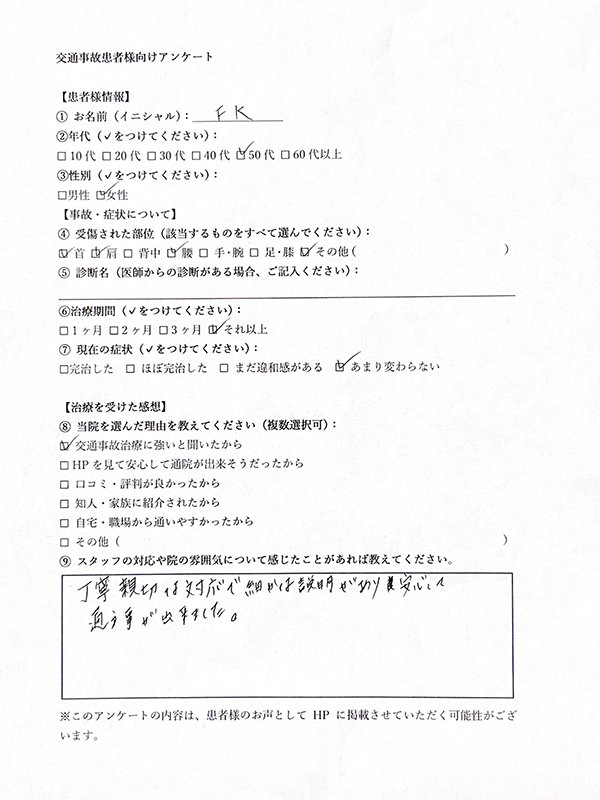 交通事故患者様向けアンケート
【患者様情報】
① お名前（イニシャル）： F K
②年代（✓をつけてください）：
□ 10 代 □ 20 代 □ 30 代 □ 40 代 ☑ 50 代 □ 60 代以上
③性別（✓をつけてください）：
□男性 ☑女性
【事故・症状について】
④ 受傷された部位（該当するものをすべて選んでください）：
☑ 首 ☑ 肩 □ 背中 ☑ 腰 □ 手・腕 □ 足・膝 ☑ その他（ ）
⑤ 診断名（医師からの診断がある場合、ご記入ください）：
⑥治療期間（✓をつけてください）：
□ 1 ヶ月 □ 2 ヶ月 □ 3 ヶ月 ☑ それ以上
⑦ 現在の症状（✓をつけてください）：
□完治した □ ほぼ完治した □ まだ違和感がある ☑ あまり変わらない
【治療を受けた感想】
⑧ 当院を選んだ理由を教えてください（複数選択可）：
☑ 交通事故治療に強いと聞いたから
□ HP を見て安心して通院が出来そうだったから
□ 口コミ・評判が良かったから
□ 知人・家族に紹介されたから
□ 自宅・職場から通いやすかったから
□ その他（ ）
⑨ スタッフの対応や院の雰囲気について感じたことがあれば教えてください。
丁寧親切な対応で細かな説明があり安心して
通う事が出来ました。
※このアンケートの内容は、患者様のお声として HP に掲載させていただく可能性がござ
います。